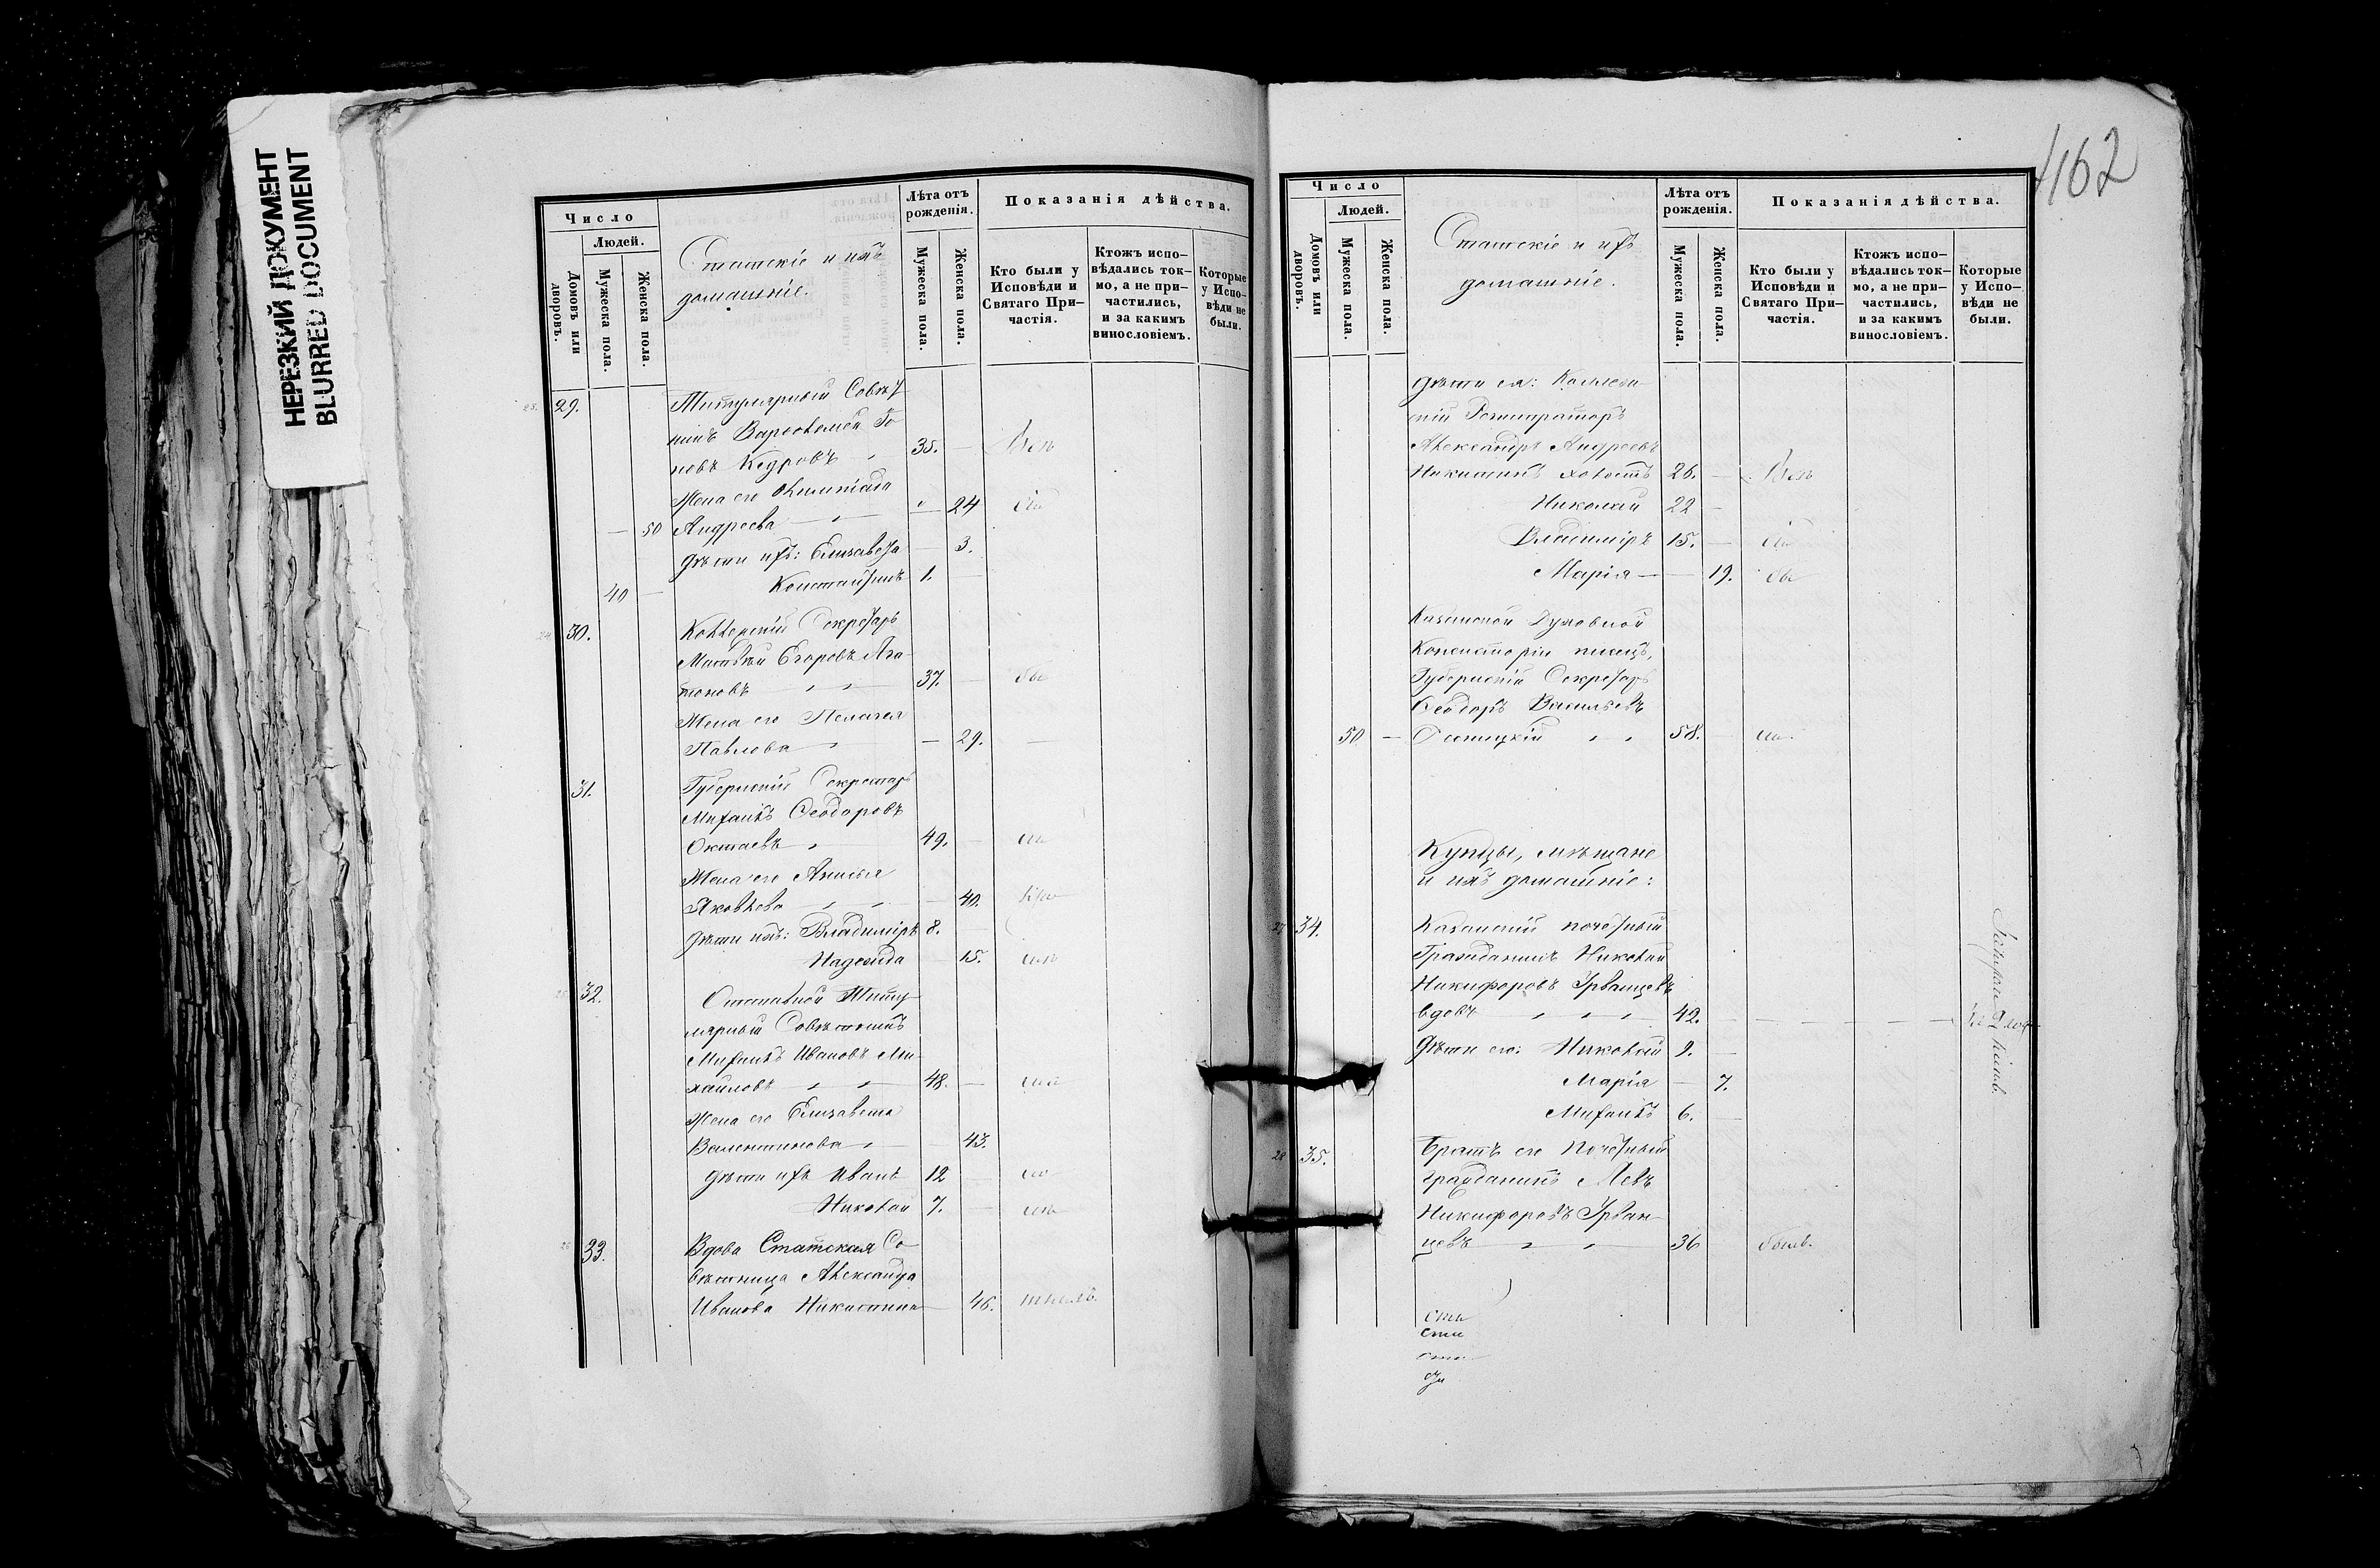 НЕРЕЗКИЙ ДОКУМЕНТ
BLURRED DOCUMENT
Число
Людей.
Домовъ или дворовъ.
Мужеска пола.
Женска пола.
Статскіе и ихъ
домашніе.
Лѣта отъ
рожденія.
Мужеска пола.
Женска пола.
Показанія дѣйства.
Кто были у
Исповѣди и
Святаго При-
частія.
Ктожъ испо-
вѣдались ток-
мо, а не при-
частились,
и за какимъ
винословіемъ.
Которые
у Испо-
вѣди не
были.
29. Титулярный Совѣт
никъ Варѳоломей
новъ Кедровъ 35.
Жена его Олимпіада
50 Андреева 24
дѣти ихъ: Елизавета 3.
40 Константинъ 1.
30. Коллежскій Секретарь
Матвѣй Егоровъ Ага-
тоновъ 37. бы
Жена его Пелагея
Павлова 29.
31. Губернскій Секретарь
Михаилъ Ѳеодоровъ
Октаевъ 49.
Жена его Анисья
Яковлева 40.
дѣти ихъ: Владиміръ 8.
Надежда 15.
32. Отставной Титу-
лярный Совѣтникъ
Михаилъ Ивановъ Ми-
хайловъ 48.
Жена его Елизавета
Валентинова 43.
дѣти ихъ Иванъ 12
Николай 7.
33. Вдова Статская Со
вѣтница Александра
Иванова Никитина 46.
162
Число
Людей.
Домовъ или дворовъ.
Мужеска пола.
Женска пола.
Статскіе и ихъ
домашніе.
Лѣта отъ
рожденія.
Мужеска пола.
Женска пола.
Показанія дѣйства.
Кто были у
Исповѣди и
Святаго При-
частія.
Ктожъ испо-
вѣдались ток-
мо, а не при-
частились,
и за какимъ
винословіемъ.
Которые
у Испо-
вѣди не
были.
дѣти ея: Коллеж
скій Регистраторъ
Александръ Андреевъ
Никитинъ холостъ 26.
Николай 22
Владиміръ 15.
Марія 19. бы
Казанской Духовной
Консисторіи писецъ,
Губернскій Секретарь
Ѳеодоръ Васильевъ
50 58.
Купцы, мѣщане
и ихъ домашніе:
27 34. Казанскій почетный
Гражданинъ Николай
Никифоровъ Урванцевъ
вдовъ 42.
дѣти его: Николай 9.
Марія 7.
Михаилъ 6.
28 35. Братъ его Почетный
гражданинъ Левъ
Никифоровъ Урван-
цевъ 36